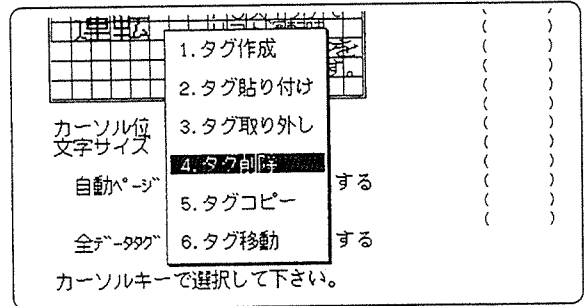 運転
1.タグ作成
2.タグ貼り付け
3.タグ取り外し
4.タグ削除
5.タグコピー
6.タグ移動
カーソル位
文字サイズ
自動ページ する
全データタグ する
カーソルキーで選択して下さい。